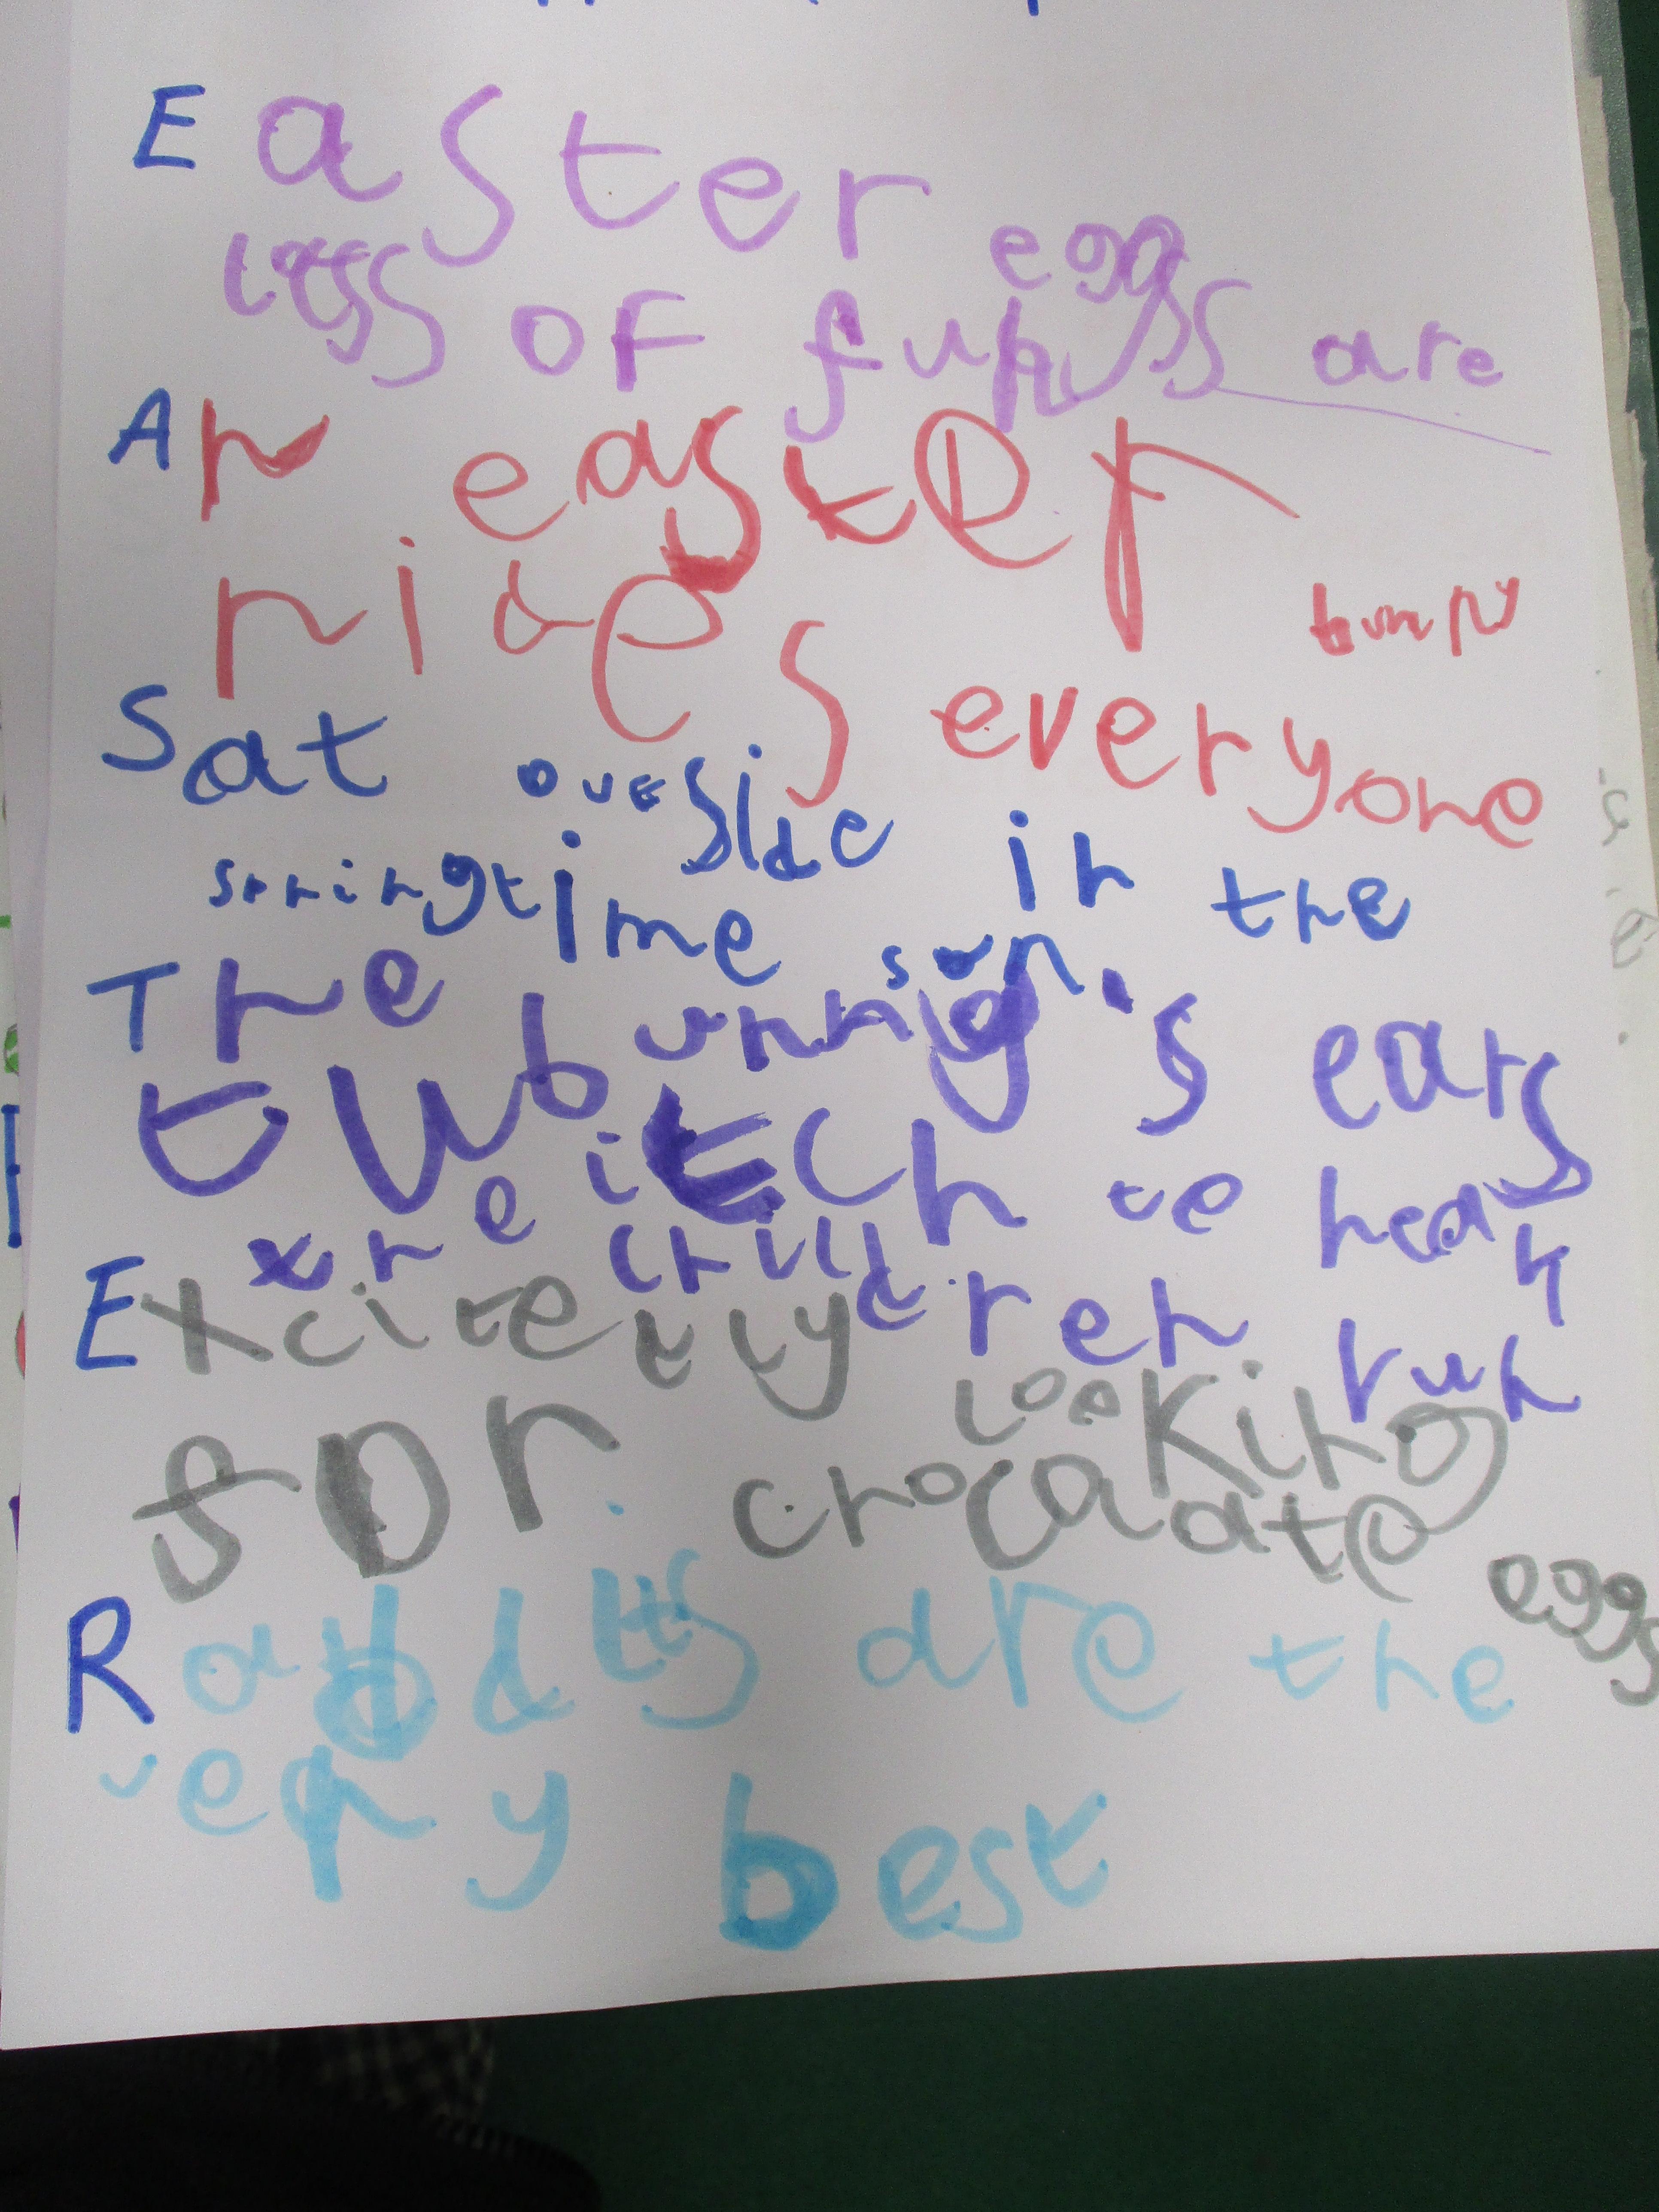 Easter eggs are
lots of fun
An easter bunny
rides everyone
Sat outside in the
springtime sun.
The bunny's ears
twitch to hear
the children run
Excitedly looking
for chocolate eggs
Rabbits are the
very best